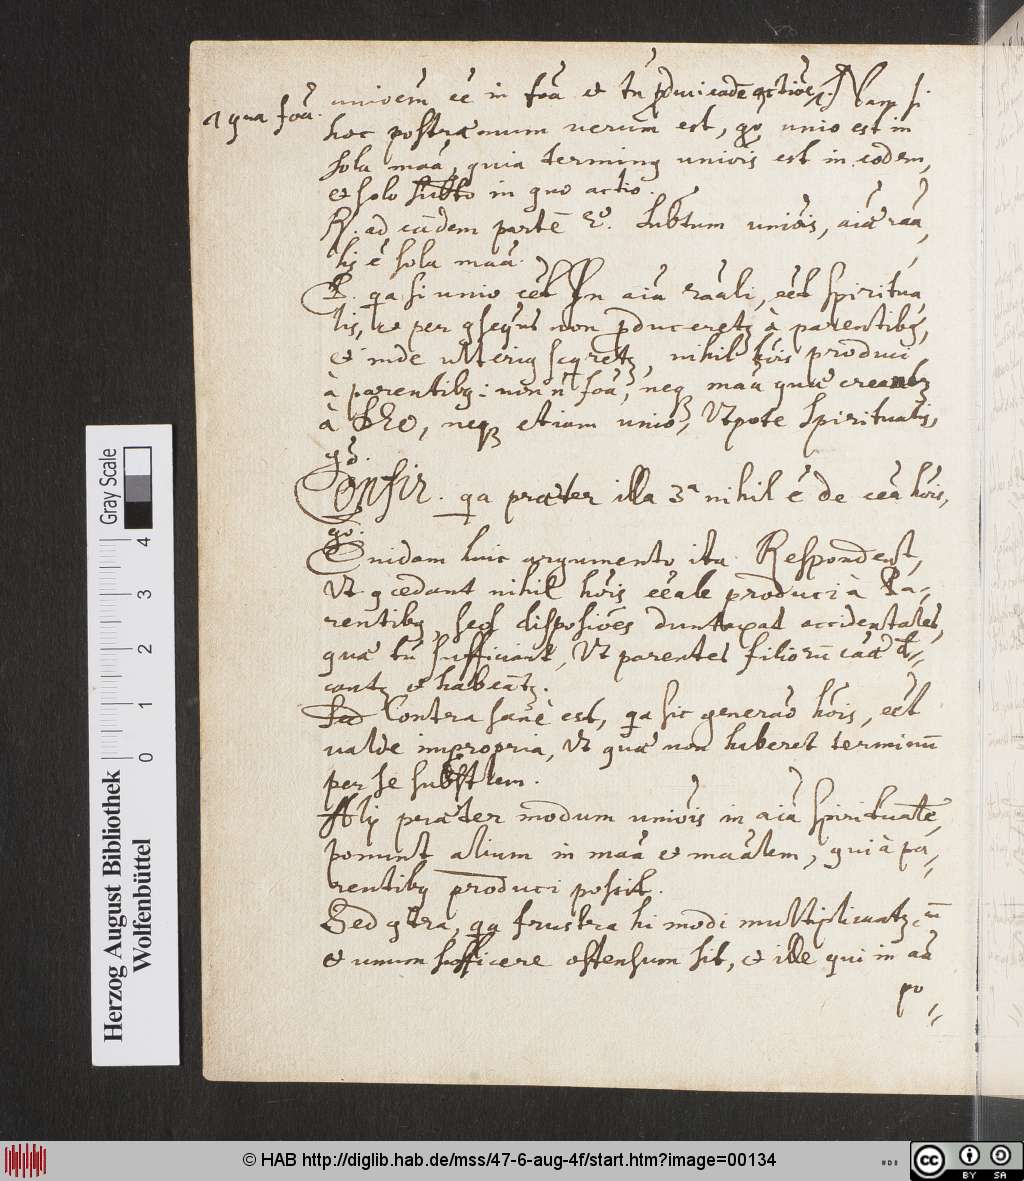 unioēm eē in foā et tn̄ p̄duci eadē actiōe, Nam si
a qua foā.
hoc postræmum verum est, gō unio est in
sola maā, quia terminus uniōis est in eodem,
et solo subto in quo actio.
R. ad eādem partē &c. Subtum uniōis, aiæ raā,,
lis ē sola maā.
P. qa si unio eēt in aiā raāli, eēt spiritua,
lis, et per gseqns non p̄duceretʒ à parentibʒ,
et inde ulterius seqretʒ, nihil hōis produci
à parentibʒ: non n̄ foā, neqʒ maā quæ creantʒ
à Deo, neqʒ etiam unio, Utpote spiritualis,
gō.
Confir. qa præter illa 3ª nihil ē de eēa hōis,
gō.
Quidam huic argumento ita Respondent,
Ut gcedant nihil hōis eēale produci à Pa-
rentibʒ, sed disposiōes duntaxat accidentales,
quæ tn̄ sufficiant, Ut parentes filiorū caæ di,,
cantʒ et habeātʒ.
Sed Contra sanè est, qa sic generaō hōis, eēt
valde impropria, Ut quæ non haberet terminū
per se subštlem.
Alij præter modum uniōis in aiā spiritualē,
ponunt alium in maā et maālem, qui à pa,,
rentibʒ produci possit.
Sed gtra, qa frustra hi modi multiplicantʒ cū
et unum sufficere ostensum sit, et ille qui in aā
po,,
Gray Scale
4
3
2
1
0
Herzog August Bibliothek
Wolfenbüttel
© HAB http://diglib.hab.de/mss/47-6-aug-4f/start.htm?image=00134
cc
BY SA